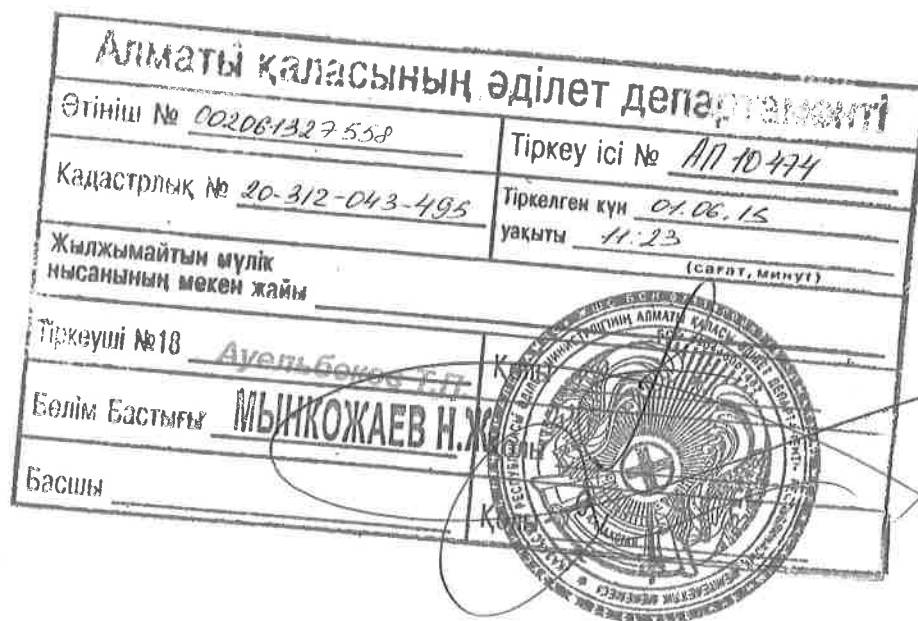 Алматы қаласының әділет департаменті
Өтініш № 002061327558
Тіркеу ісі № АП 10474
Кадастрлық № 20-312-043-495
Тіркелген күн 01.06.15
уақыты 11:23
(сағат, минут)
Жылжымайтын мүлік
нысанының мекен жайы
Тіркеуші №18 Ауельбеков Т.П
Қолы
Бөлім Бастығы МЫНКОЖАЕВ Н.Ж
Қолы
Басшы
Қолы